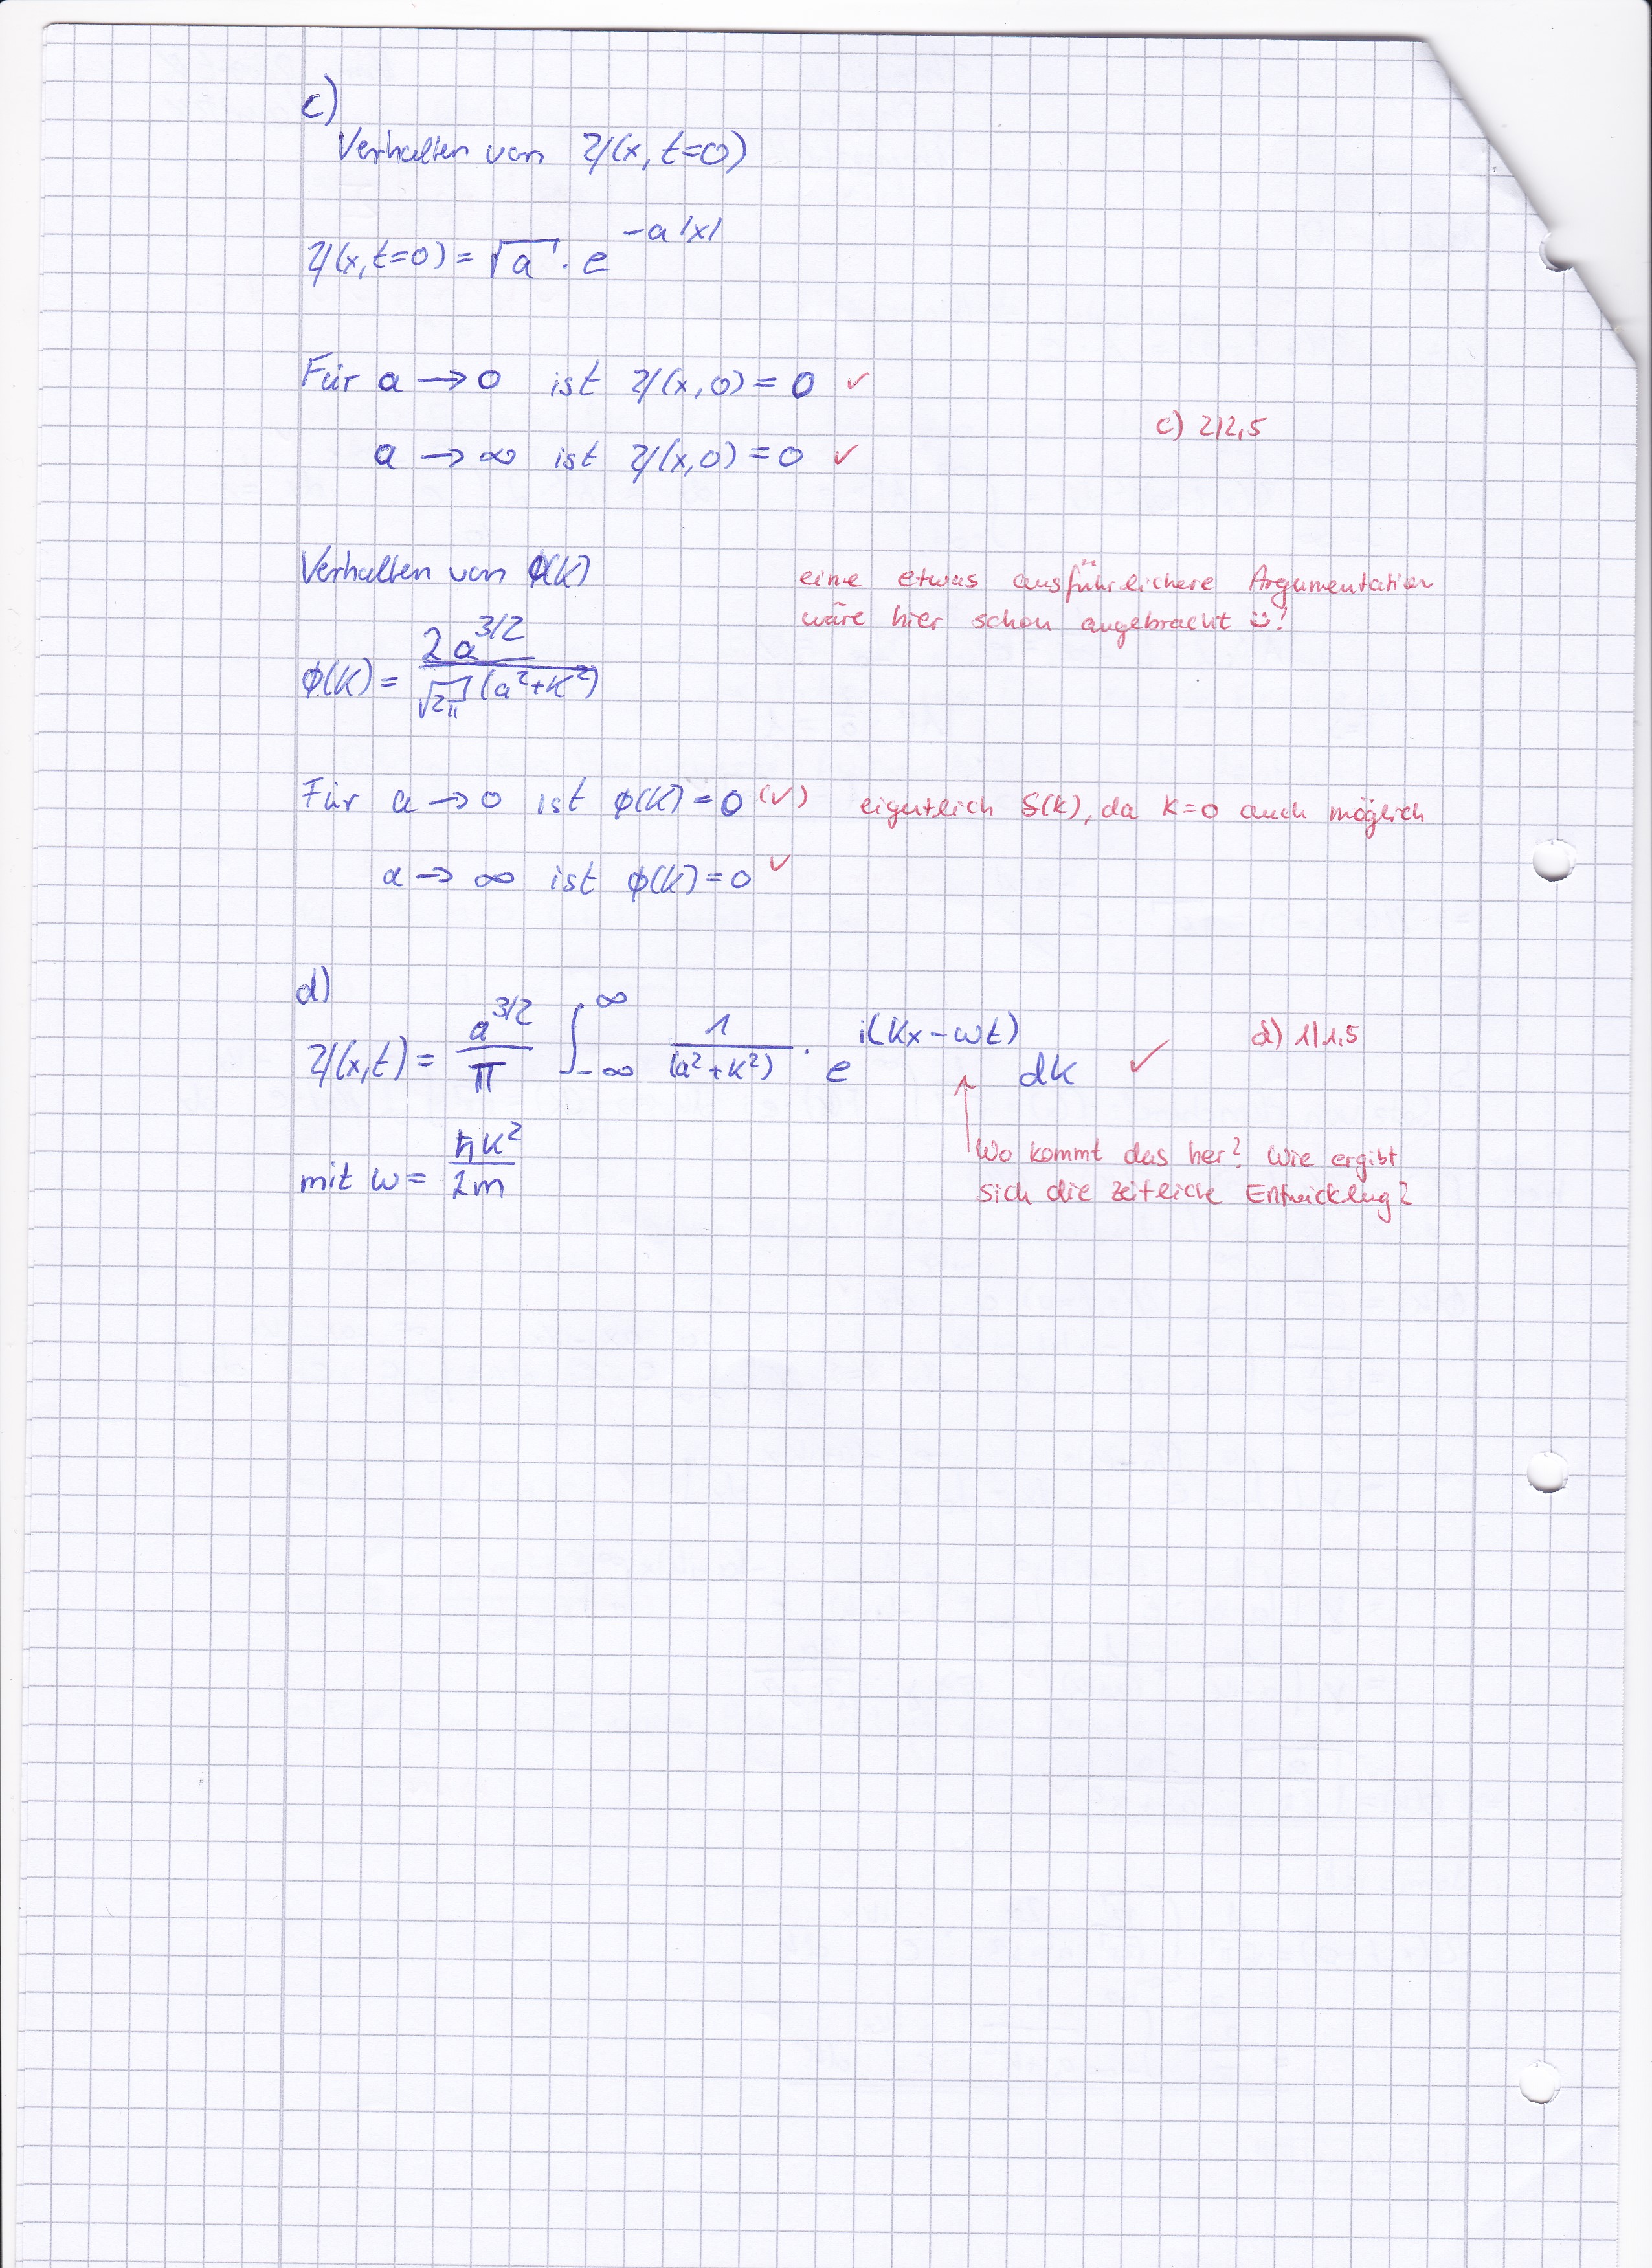 c)
Verhalten von Ψ(x, t=0)
Ψ(x,t=0) = √a · e^{-a|x|}
Für a → 0 ist Ψ(x,0) = 0 ✓
c) 2/2,5
a → ∞ ist Ψ(x,0) = 0 ✓
Verhalten von ϕ(k)
eine etwas ausführlichere Argumentation
wäre hier schon angebracht ☺!
ϕ(k) = \frac{2a^{3/2}}{\sqrt{2π}(a²+k²)}
Für a → 0 ist ϕ(k) = 0 (✓) eigentlich δ(k), da k=0 auch möglich
a → ∞ ist ϕ(k) = 0 ✓
d)
Ψ(x,t) = \frac{a^{3/2}}{π} ∫_{-∞}^{∞} \frac{1}{(a²+k²)} · e^{i(kx-ωt)} dk ✓
d) 1/1,5
mit ω = \frac{ħk²}{2m}
Wo kommt das her? Wie ergibt
sich die zeitliche Entwicklug?